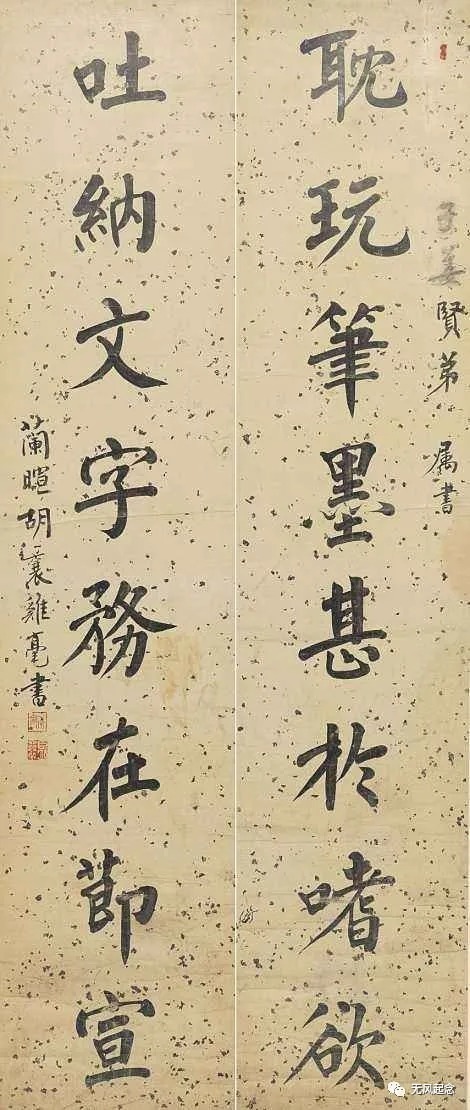 子姜賢弟 属書
耽玩筆墨甚於嗜欲
吐納文字務在節宣
蘭暄胡襄雞毫書
无风起念